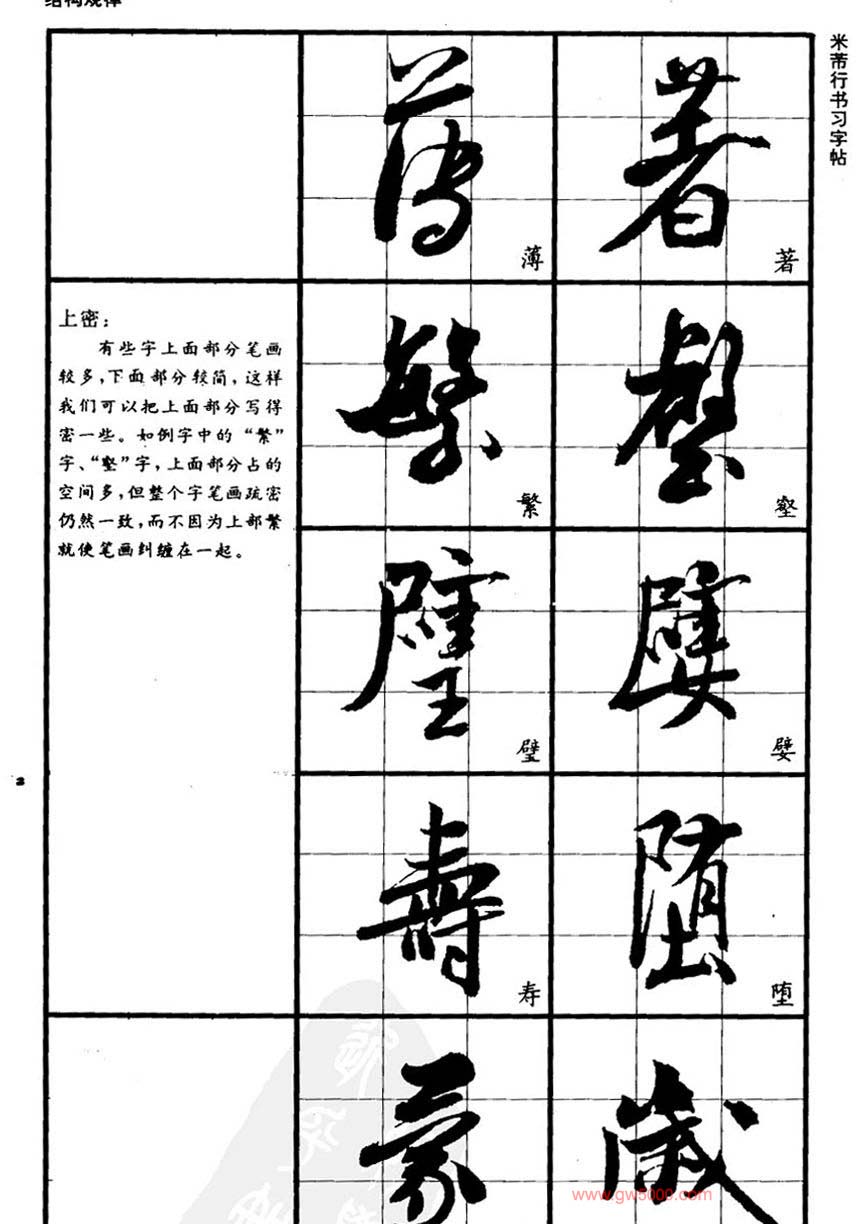 结构规律
米芾行书习字帖
著
著
薄
薄
壑
壑
繁
繁
上密：
有些字上面部分笔画
较多，下面部分较简，这样
我们可以把上面部分写得
密一些。如例字中的“繁”
字、“壑”字，上面部分占的
空间多，但整个字笔画疏密
仍然一致，而不因为上部繁
就使笔画纠缠在一起。
嬖
嬖
璧
璧
堕
堕
壽
寿
歲
2
www.gw5000.com